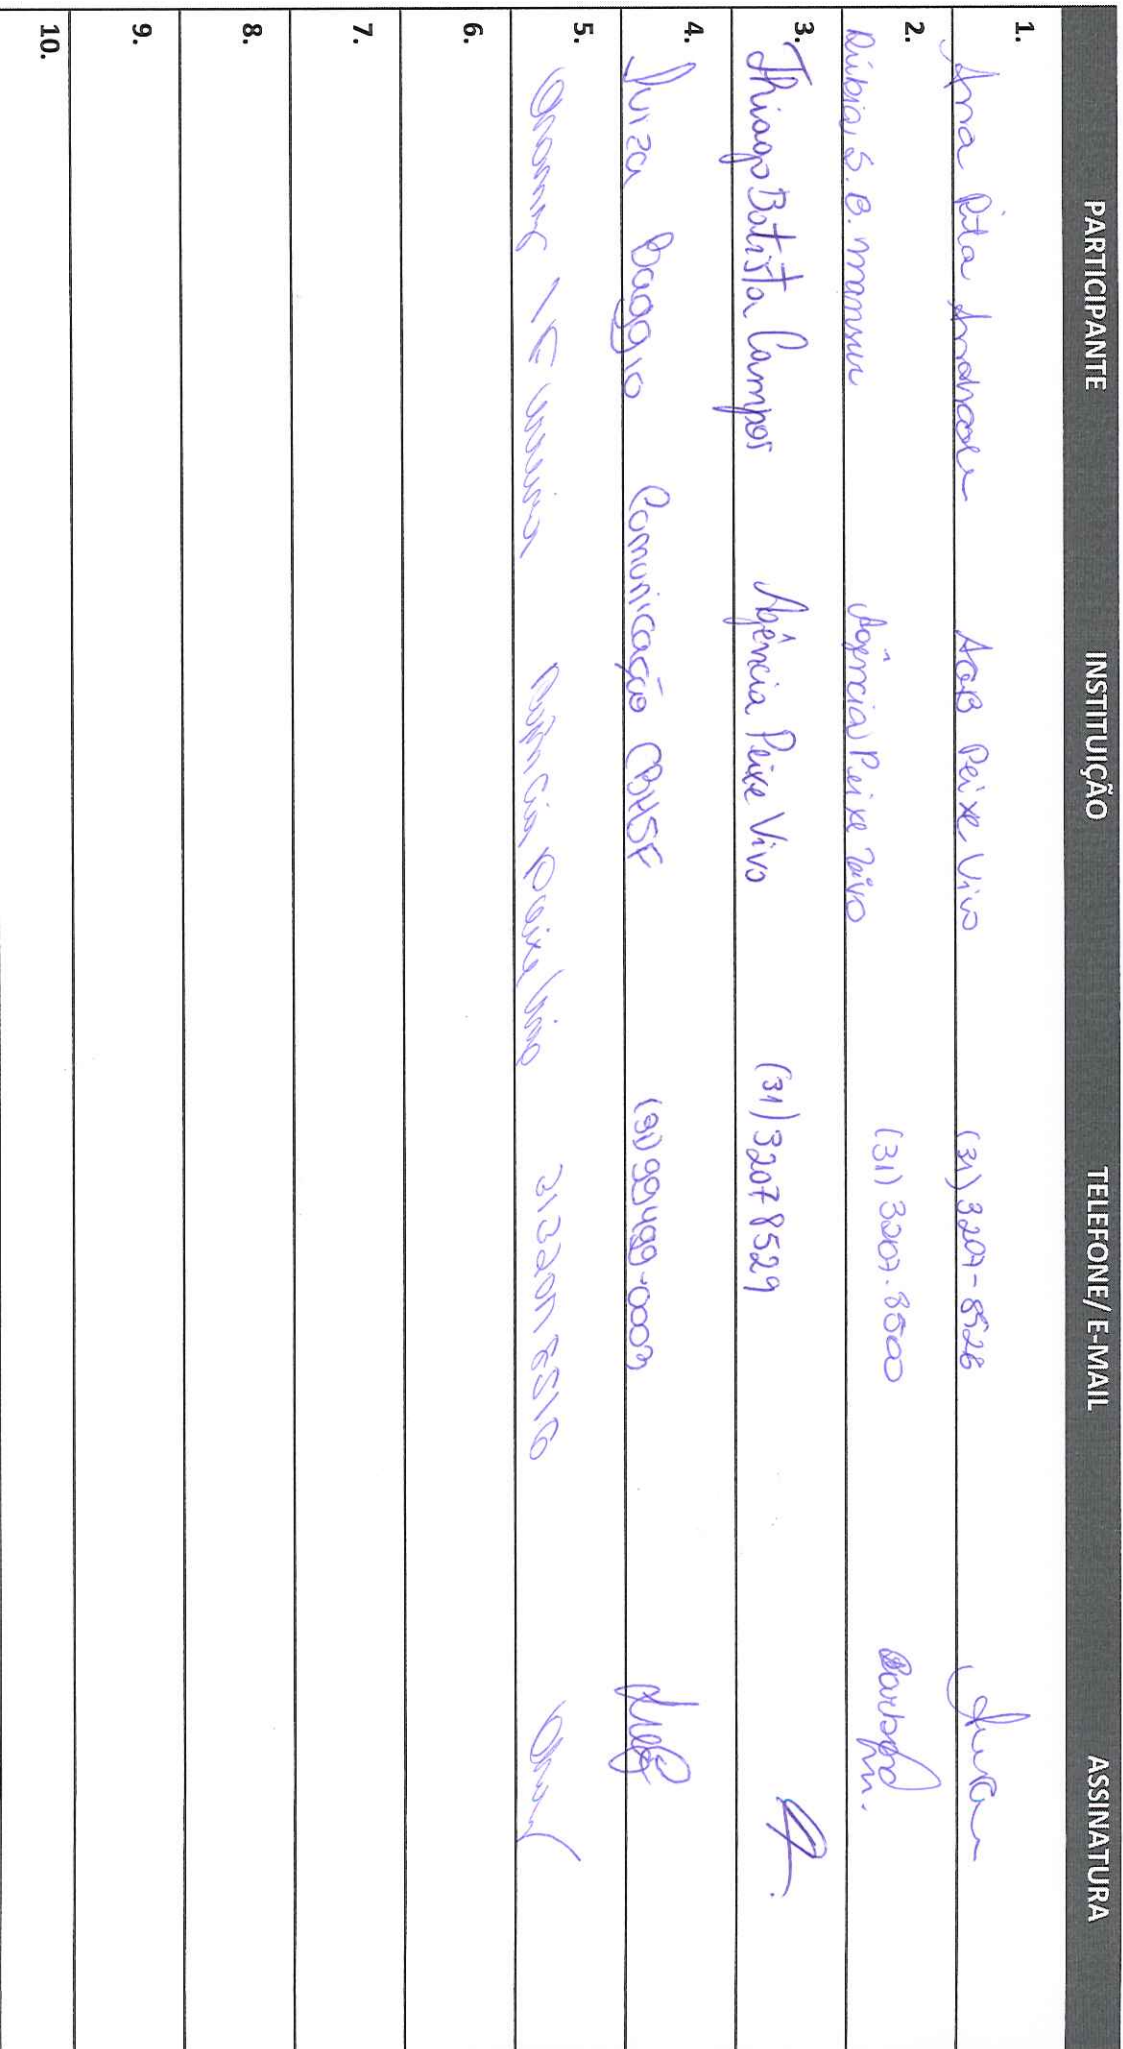 PARTICIPANTE INSTITUIÇÃO TELEFONE/ E-MAIL ASSINATURA
1. Ana Rita AGB Peixe Vivo (31) 3207-8528
2. Rúbia S. B. Mansur Agência Peixe Vivo (31) 3207-8500 Barbara M.
3. Thiago Batista Campos Agência Peixe Vivo (31) 3207 8529
4. Luiza Baggio Comunicação CBHSF (31) 99499-0003
5. Agência Peixe Vivo
6.
7.
8.
9.
10.